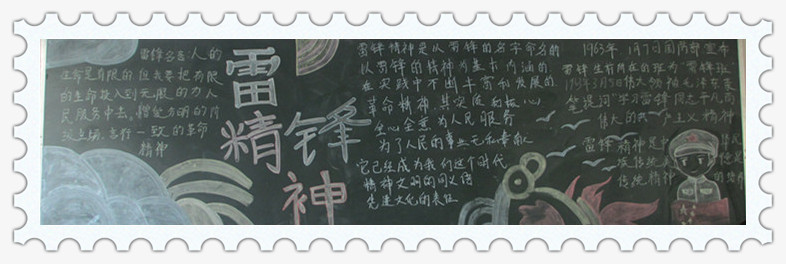 雷锋名言:人的
生命是有限的 但我要把有限
的生命投入到无限的为人
民服务中去,憎爱分明的阶
级立场,言行一致的革命
精神
雷
锋
精
神
雷锋精神是以雷锋的名字命名的
以雷锋的精神为基本内涵的
在实践中不断丰富和发展的
革命精神 其实质和核心
全心全意为人民服务
为了人民的事业无私奉献
它已经成为我们这个时代
精神文明的同义语
先进文化的表征
1963年 1月7日国防部宣布
雷锋生前所在的班为"雷锋班"
1963年3月5日伟大领袖毛主席
笔题词"学习雷锋同志平凡而
伟大的共产主义精神
雷锋精神是中
传统
传统精神